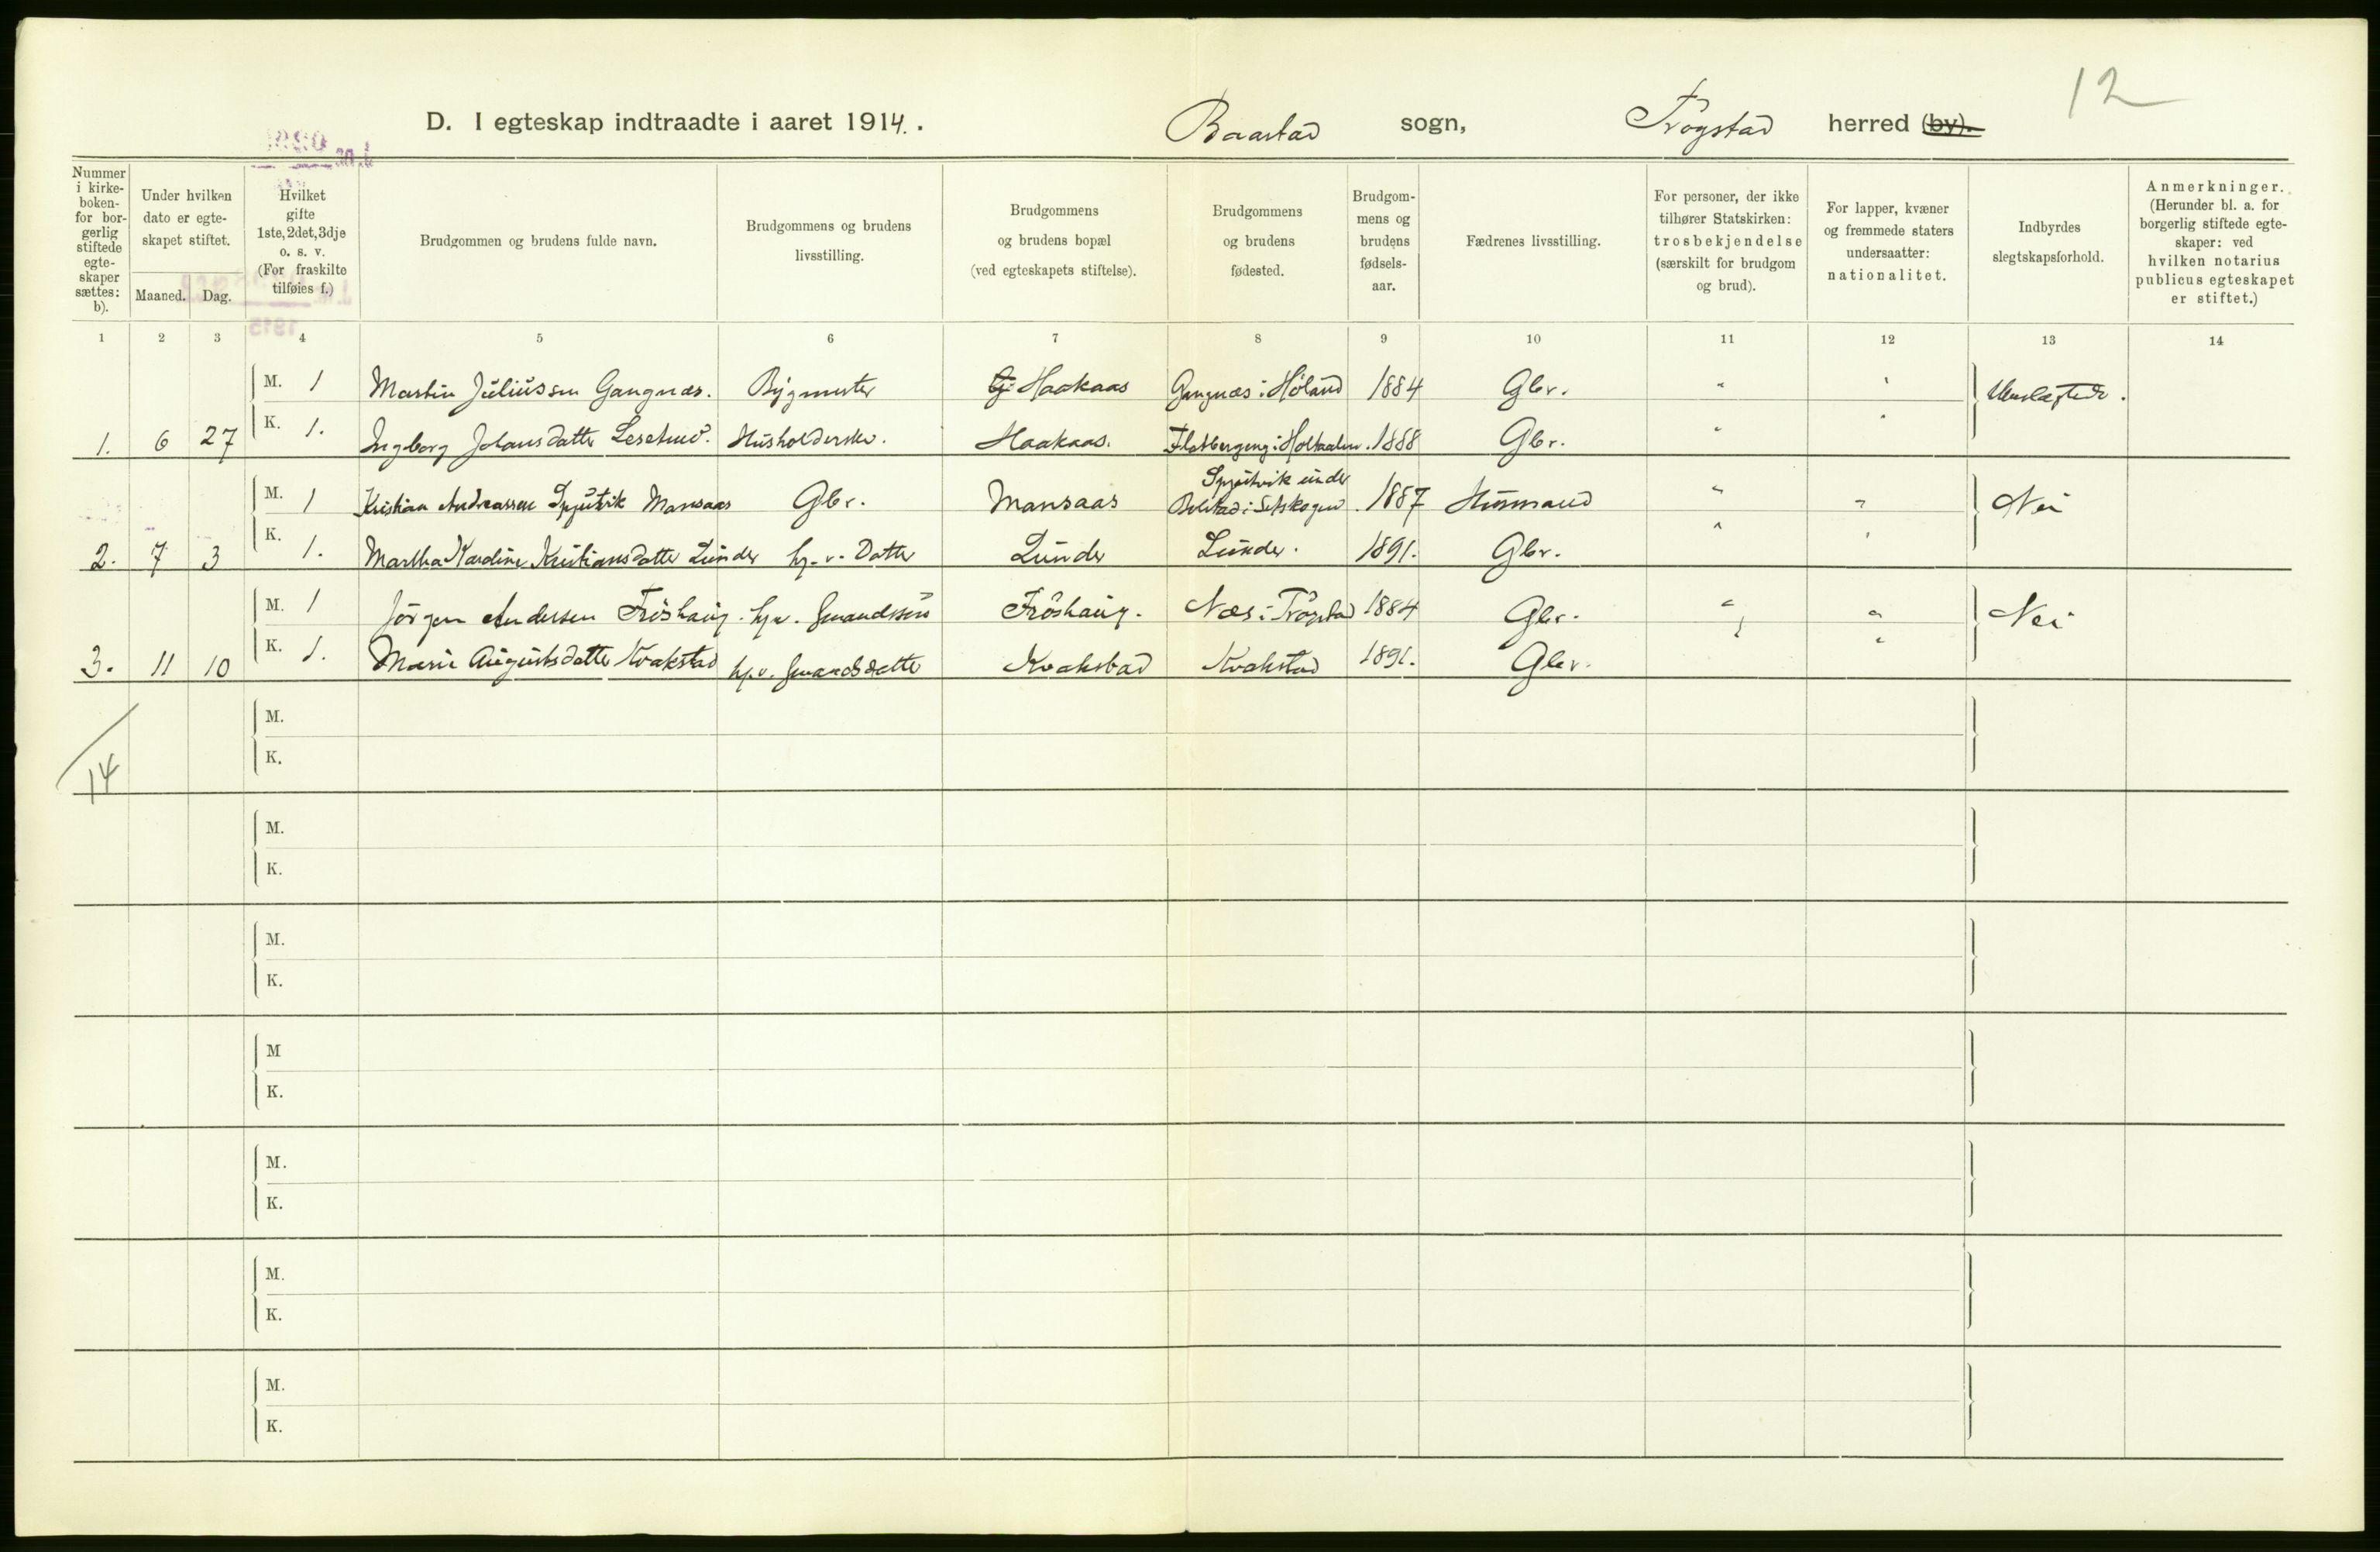 12
D. I egteskap indtraadte i aaret 1914. . Baastad sogn, Trøgstad herred (by).
Nummer i kirkeboken for borgerlig stiftede egteskaper sættes: b).
Under hvilken dato er egteskapet stiftet.
Maaned. Dag.
Hvilket gifte 1ste, 2det, 3dje o. s. v. (For fraskilte tilføies f.)
Brudgommen og brudens fulde navn.
Brudgommens og brudens livsstilling.
Brudgommens og brudens bopæl (ved egteskapets stiftelse).
Brudgommens og brudens fødested.
Brudgommens og brudens fødselsaar.
Fædrenes livsstilling.
For personer, der ikke tilhører Statskirken: trosbekjendelse (særskilt for brudgom og brud).
For lapper, kvæner og fremmede staters undersaatter: nationalitet.
Indbyrdes slegtskapsforhold.
Anmerkninger. (Herunder bl. a. for borgerlig stiftede egteskaper: ved hvilken notarius publicus egteskapet er stiftet.)
1 2 3 4 5 6 7 8 9 10 11 12 13 14
M. 1 Martin Juliussen Gangnæs. Bygmester Haakaas Gangnæs i Høland 1884 Gbr. " "
1. 6 27 K. 1. Ingeborg Johansdatter Husholderske. Haakaas. 1888 Gbr. " "
M. 1 Kristian Andreassen Spjutvik Mansaas Gbr. Mansaas Spjutvik under Bolstad i Setskogen. 1887 Husmand " " Nei
2. 7 3 K. 1. Martha Karoline Kristiansdatter Lunder hj. v. Datter Lunder Lunder. 1891. Gbr. " "
M. 1 Jørgen Andersen Frøshaug. hjv. Gmandssøn Frøshaug. Næs i Trøgstad 1884 Gbr. " " Nei
3. 11 10 K. 1. Marie Augustsdatter Kvakstad hj.v. Gmandsdatter Kvakstad Kvakstad 1891. Gbr. " "
M.
14 K.
M.
K.
M.
K.
M
K.
M.
K.
M.
K.
M.
K.